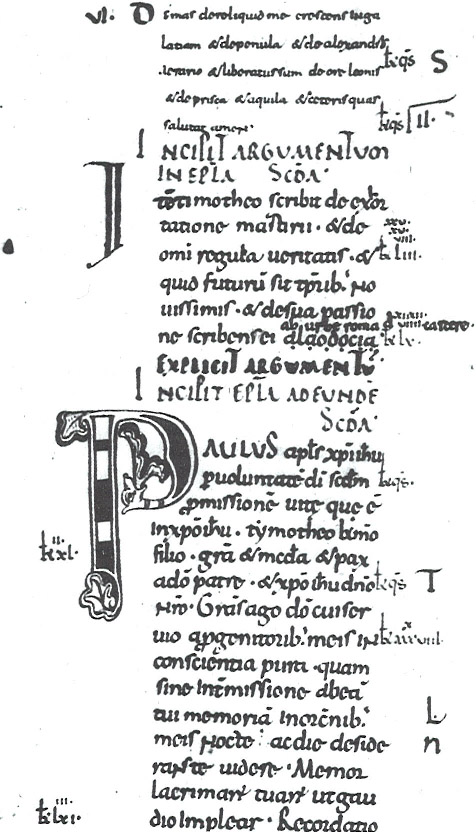 VI. Dimas dereliquid me crescens inga
latiam & de penula & de alexandro
erario & liberatus sum de ore leonis
& de prisca & aquila & ceteris quas
salutat amen.
S
INCIPIT ARGUMENTUM
IN EPLA SCDA.
Itē timotheo scribit de exor
tatione martirii. & de
omi regula ueritatis. &
quid futurū sit tp̄rib: No
uissimis. & de sua passio
ne scribens ei ab urbe roma
a laodocia
EXPLICIT ARGUMENTŪ
INCIPIT EPLA AD EUNDĒ
SCDA.
PAULUS apl̄s xp̄i ih̄u
p uoluntatē dī scdm
pmissionē uitę que ē
in xp̄o ih̄u. tymotheo kmo
filio. grā & mcdia & pax
a dō patre. & xp̄o ih̄u dno
T
Nr̄o. Gras ago dō cui ser
uio a pgenitorib: meis in
consciēntia pura. quam
sine int̄missione abeā
tui memoriā in or̄cnib:
L
meis Nocte ac die deside
n
rans te uidere. Memor
lacrimarū tuarū ut gau
dio implear. Recordatio